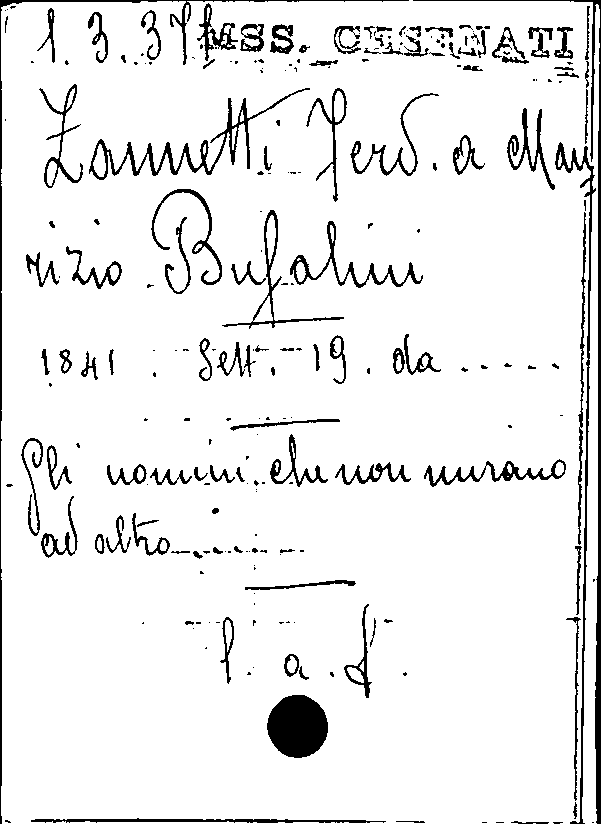 1.3.37 MSS. CESENATI
Zannetti Ferd. a Mau
rizio Bufalini
1841. Sett. 19. da .....
Gli uomini che non mirano
ad altro......
l. a. f.